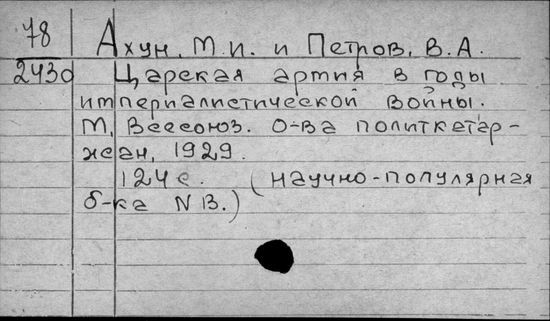 78 Ахун, М.И. и Петров, В.А.
2430 Царская артия в годы
империалистической войны.
М, Всесоюз. о-ва политкатар-
жан, 1929.
124с. (научно-популярная
б-ка N В.)